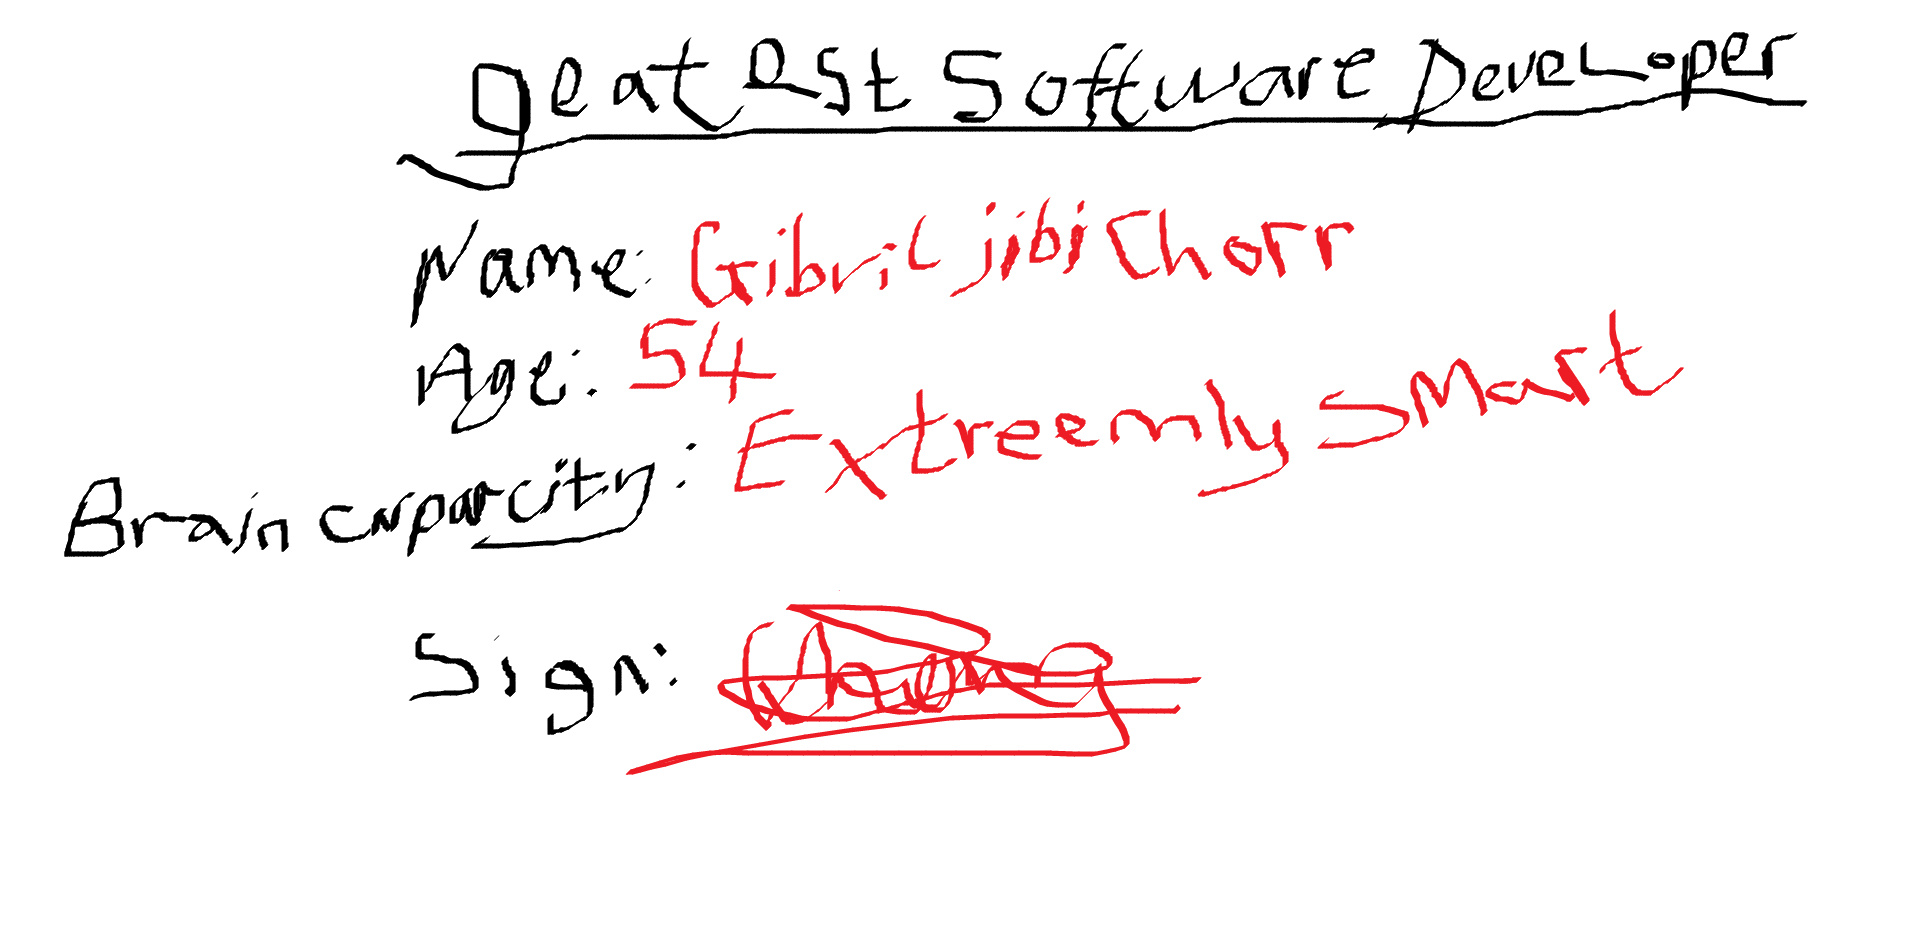 geatest Software Developer
Name: Gibril jibi Chorr
Age: 54
Brain caparcity: Extreemly smart
Sign: